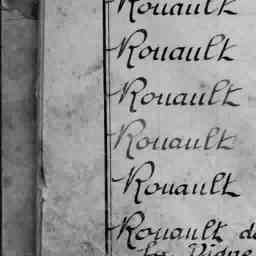 Rouault
Rouault
Rouault
Rouault
Rouault
Rouault de
la Vigne